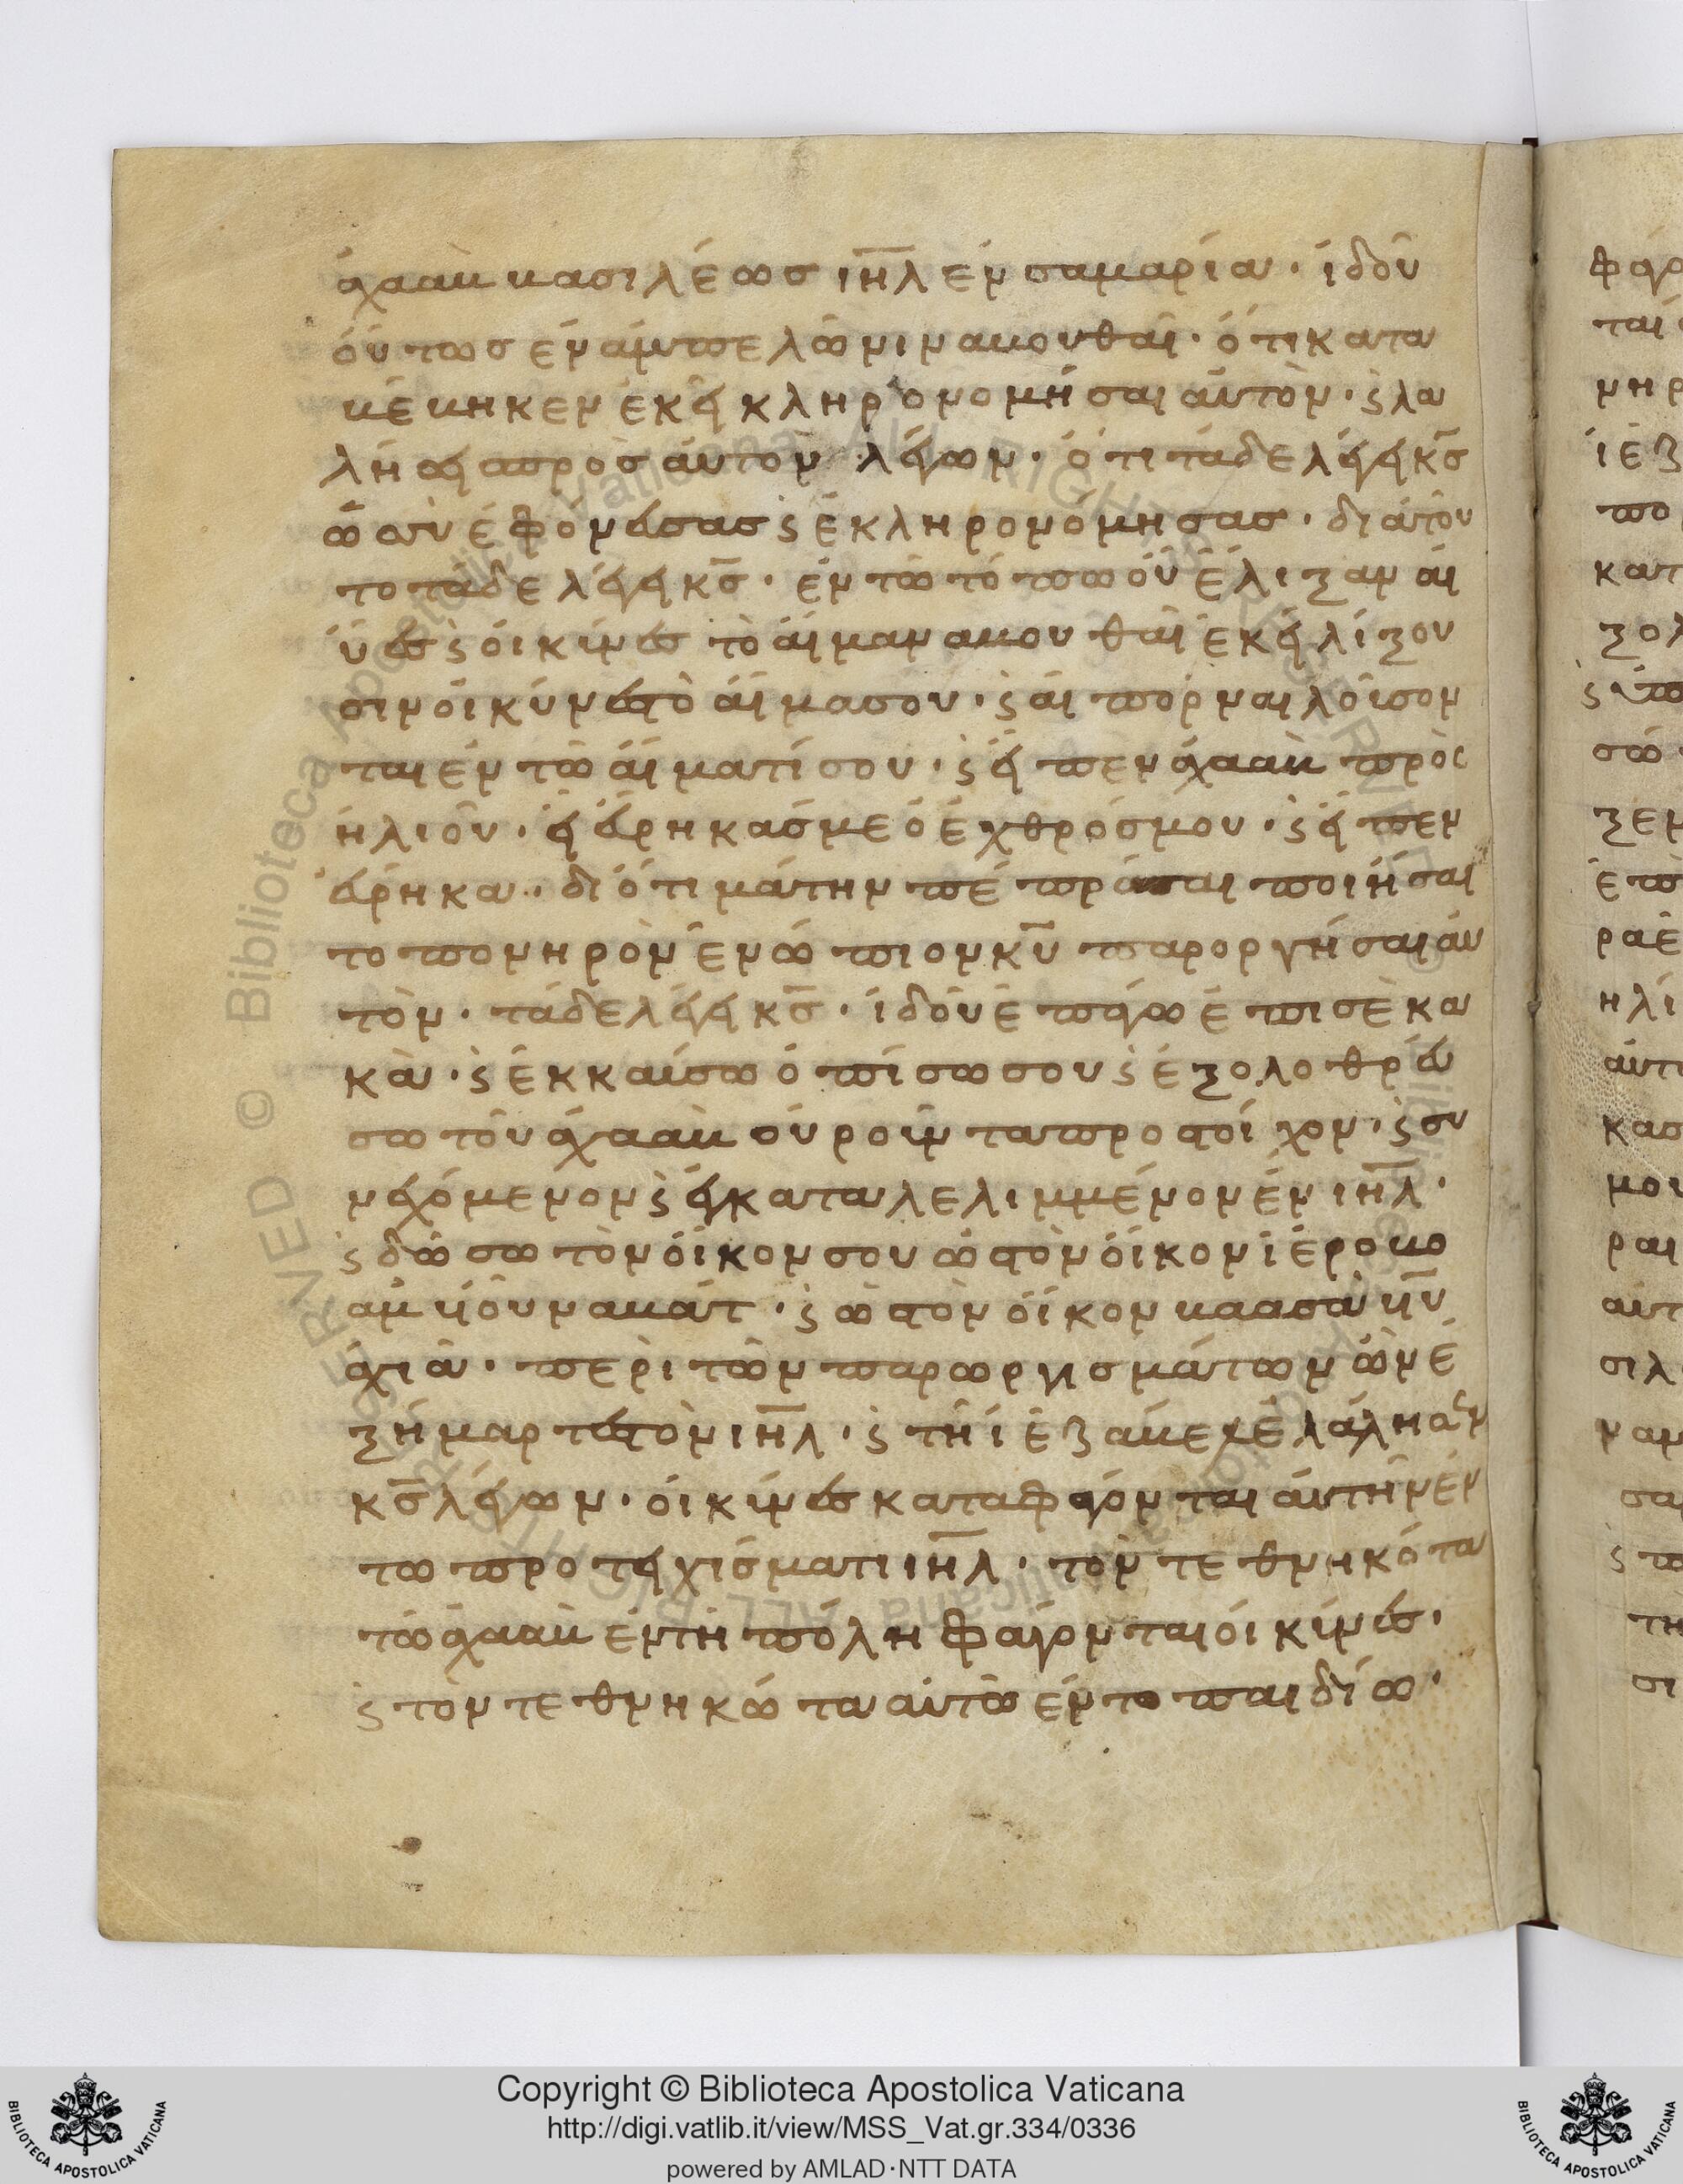 ἀχαὰβ βασιλέωσ ιη̅λ ἐν σαμαρία· ἰδοῦ
οὕτωσ ἐν ἀμπελῶνι ναβουθαὶ· ὅτι κατα
βέβηκεν ἐκεῖ κληρονομῆσαι αὐτὸν· ϛ λα
λήσει πρὸσ αὐτὸν λέγων· ὅτι τάδε λέγει κ̅σ
ὡσ σὺ ἐφονευσασ ϛ ἐκληρονόμησασ· διατοῦ
το τάδε λέγει κ̅σ· ἐν τῶ τόπω οὗ ἔλιξαν αἱ
ὕεσ ϛ οἱ κύνεσ τὸ αἷμα ναβουθαὶ ἐκεῖ λίξου
σιν οἱ κύνεσ τὸ αἷμα σου· ϛ αἱ πόρναι λούσον
ται ἐν τῶ αἵματί σου· ϛ εἶπεν ἀχαὰβ πρὸσ
ἠλιοῦ· εἰ εὕρηκασ με ὁ ἐχθρόσ μου· ϛ εἶπεν
εὕρηκα· διότι μάτην πέπρασαι ποιῆσαι
το πονηρὸν ἐνώπιον κ̅υ παροργῆσαι αυ
τὸν· τάδε λέγει κ̅σ· ἰδοὺ ἐπάγω ἐπι σὲ κα
κὰ· ϛ ἐκκαύσω ὀπίσω σου ϛ ἐξολοθρεύ
σω τοῦ ἀχαὰβ οὐροῦντα προσ τοίχον· ϛ συ
νεχόμενον ϛ ἐγκαταλελιμμένον ἐν ιη̅λ·
ϛ δώσω τὸν οἶκον σου ὡσ τὸν οἶκον ἱεροβο
ὰμ υἱοῦ ναβάτ· ϛ ὡσ τὸν οἶκον βαασὰ υ̅υ
ἀχιὰ· περὶ τῶν παρωργισμάτων ὧν ἐ
ξήμαρτεσ τὸν ιη̅λ· ϛ τῆ ἰεζάβελ ἐλάλησεν
κ̅σ λέγων· οἱ κύνεσ καταφάγονται αὐτὴν ἐν
τω προτειχίσματι ιη̅λ· τὸν τεθνηκότα
τῶ ἀχαὰβ ἐν τῆ πόλη φάγονται οἱ κύνεσ·
ϛ τὸν τεθνηκώτα αὐτῶ ἐν το παιδίω·
Copyright © Biblioteca Apostolica Vaticana
http://digi.vatlib.it/view/MSS_Vat.gr.334/0336
powered by AMLAD·NTT DATA
BIBLIOTECA APOSTOLICA VATICANA
BIBLIOTECA APOSTOLICA VATICANA